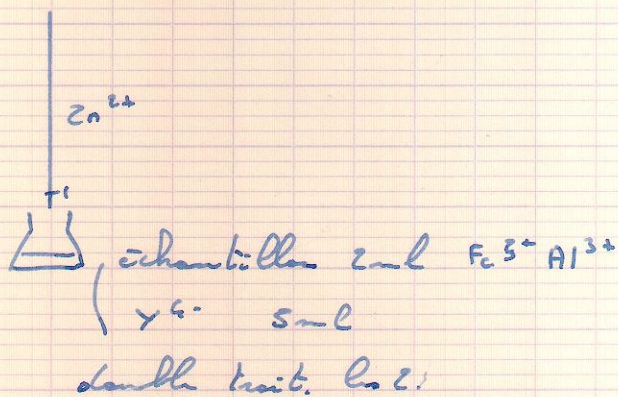 Zn²⁺
échantillon 2ml Fe³⁺ Al³⁺
Y⁴⁻ 5ml
double trait.